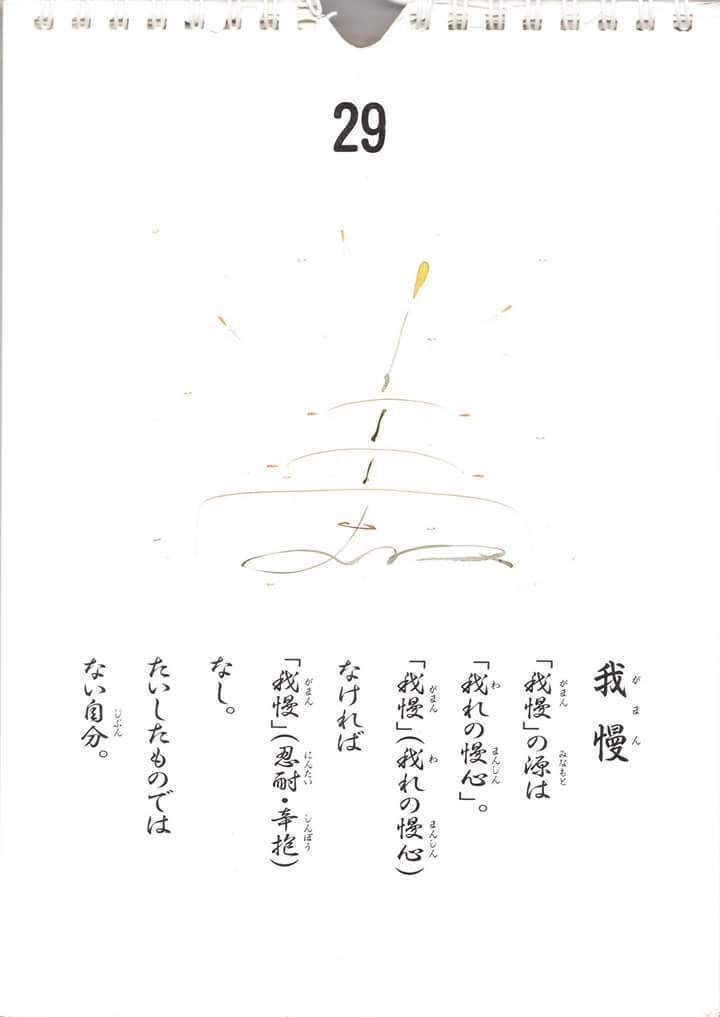 29
我慢
「我慢」の源は
「我れの慢心」。
「我慢」(我れの慢心)
なければ
「我慢」(忍耐・辛抱)
なし。
たいしたものでは
ない自分。